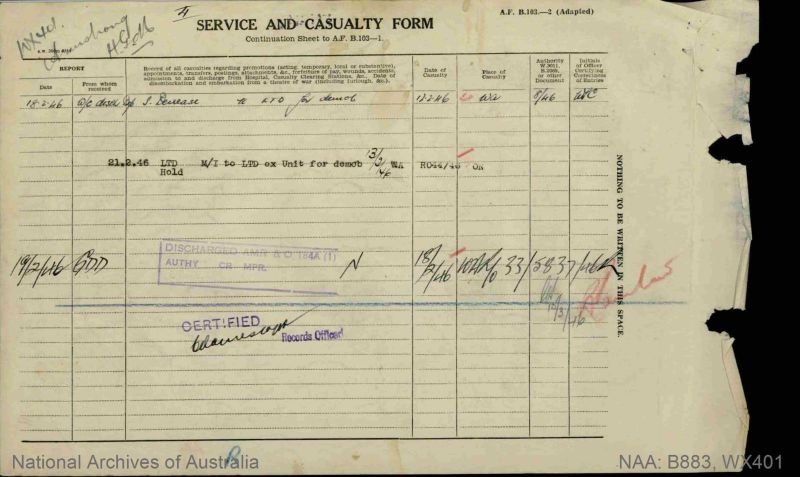 II
A.F. B.103.—2 (Adapted)
WX401
SERVICE AND CASUALTY FORM
Continuation Sheet to A.F. B.103—1.
REPORT
Date
From whom received
Record of all casualties regarding promotions (acting, temporary, local or substantive), appointments, transfers, postings, attachments, &c., forfeiture of pay, wounds, accidents, admission to and discharge from Hospital, Casualty Clearing Stations, &c. Date of disembarkation and embarkation from a theatre of war (including furlough, &c.).
Date of Casualty
Place of Casualty
Authority W.3011, B.2069, or other Document
Initials of Officer Certifying Correctness of Entries
18.2.46 to LTD for demob 18.2.46 WA 8/46
21.2.46 LTD M/I to LTD ex Unit for demob 13/2/46 WA RO44/46 ON
Hold
19/2/46 GDD DISCHARGED AMR & O 184A (1) N 18/2/46 33/5837/46
AUTHY CR MPR.
CERTIFIED
Records Officer
NOTHING TO BE WRITTEN IN THIS SPACE.
National Archives of Australia
NAA: B883, WX401